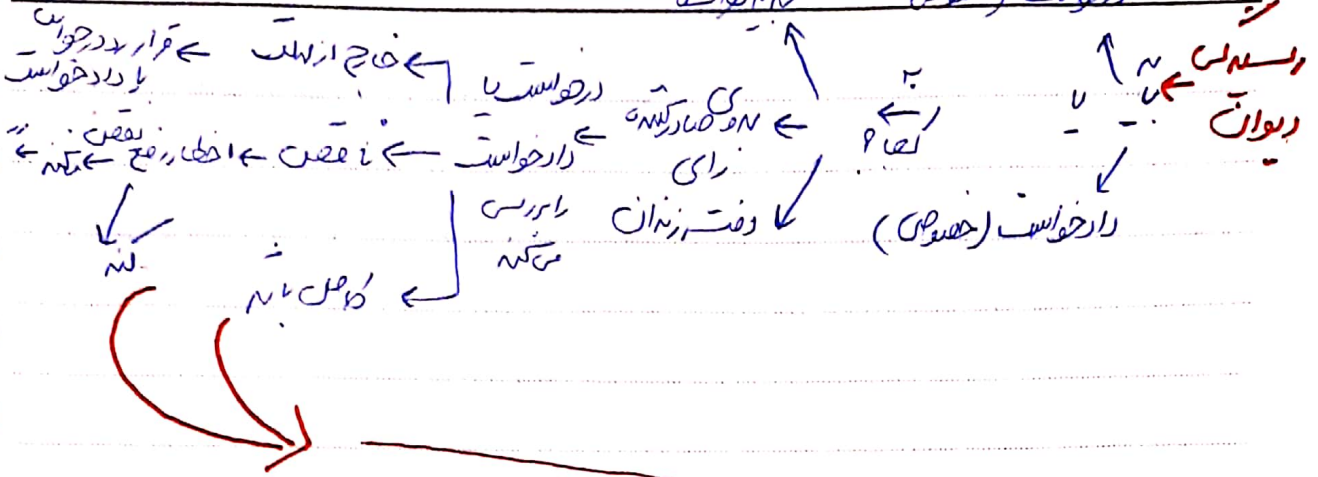 رسیدگی
دیوان
با
یا
دادخواست (خصوصی)
به
کجا؟
صادرکننده
رای
دفتر زندان
درخواست یا
دادخواست
را بررسی
می‌کند
خارج از مهلت
قرار رد درخواست
یا دادخواست
ناقص
اخطار رفع
نقص
نکند
کند
کامل باشد